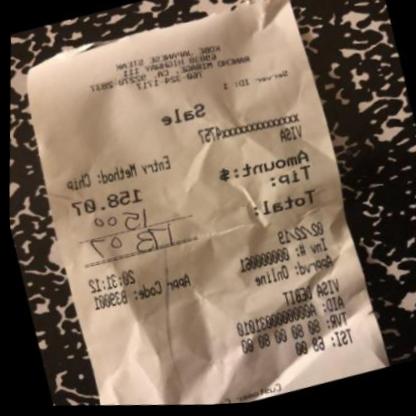 KOBE JAPANESE STEAK
69838 HIGHWAY 111
RANCHO MIRAGE, CA. 92270-2837
760-324-1717
Server ID: 1
Sale
XXXXXXXXXXXX4757
VISA Entry Method: Chip
Amount:$ 158.07
Tip: 15 00
Total: 173 07
02/22/19 20:31:12
Inv #: Appr Code:
Apprvd: Online
VISA DEBIT
AID: A0000000031010
TVR: 80 80 00 80 00
TSI: 68 00
Customer